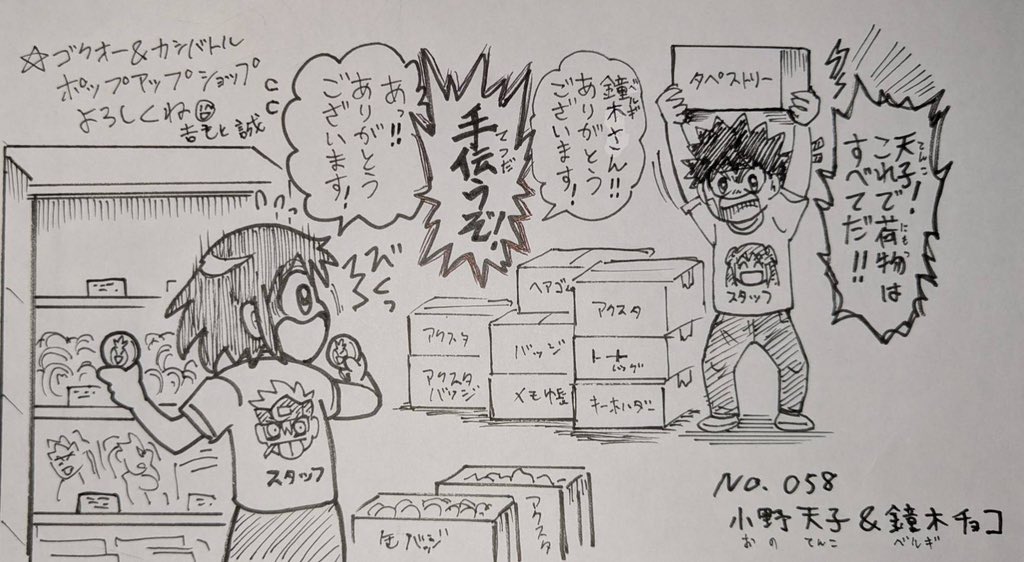 ☆ゴクオー&カシバトル
ポップアップショップ
よろしくね
吉もと誠
天子!
てんこ
これで荷物は
にもつ
すべてだ!!
タペストリー
鏡木さん!!
べるぎ
ありがとう
ございます!
手伝うぞ!
てつだ
あっ!!
ありがとう
ございます!
びくっ
スタッフ
ヘアゴム
アクスタ
アクスタ
バッジ
トート
バッグ
アクスタ
バッジ
メモ帳
キーホルダー
スタッフ
缶バッジ
アクスタ
NO.058
小野天子&鏡木チョコ
おの てんこ ベルギ